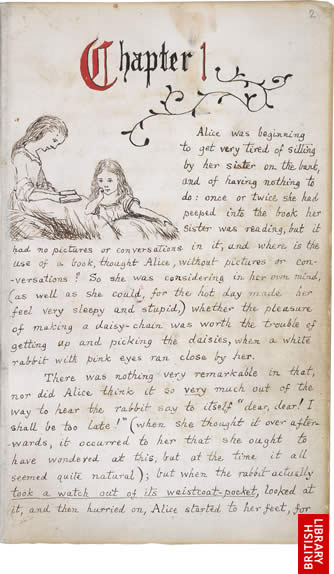 2
Chapter 1
Alice was beginning
to get very tired of sitting
by her sister on the bank,
and of having nothing to
do: once or twice she had
peeped into the book her
sister was reading, but it
had no pictures or conversations in it, and where is the
use of a book, thought Alice, without pictures or con-
-versations? So she was considering in her own mind,
(as well as she could, for the hot day made her
feel very sleepy and stupid,) whether the pleasure
of making a daisy-chain was worth the trouble of
getting up and picking the daisies, when a white
rabbit with pink eyes ran close by her.
There was nothing very remarkable in that,
nor did Alice think it so very much out of the
way to hear the rabbit say to itself "dear, dear! I
shall be too late!" (when she thought it over after-
wards, it occurred to her that she ought to
have wondered at this, but at the time it all
seemed quite natural); but when the rabbit actually
took a watch out of its waistcoat-pocket, looked at
it, and then hurried on, Alice started to her feet, for
BRITISH
LIBRARY